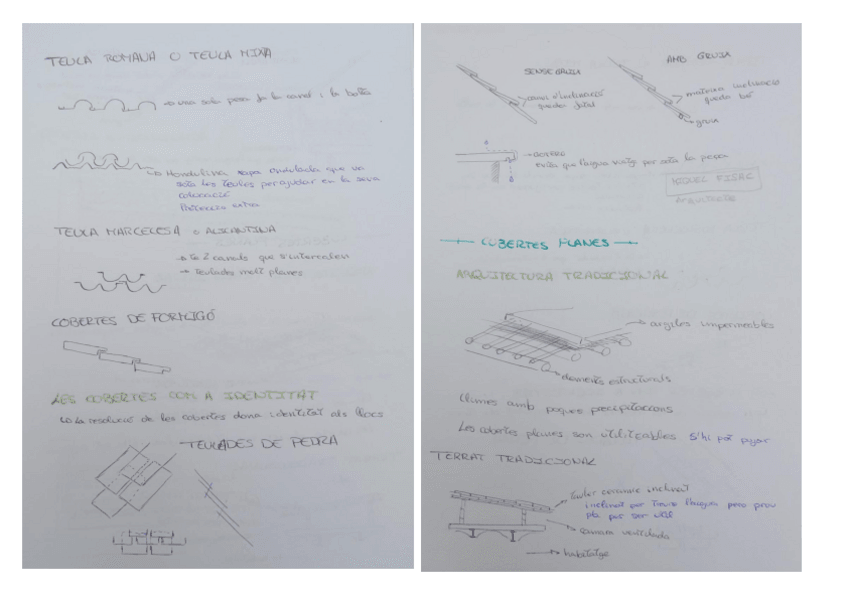 TEULA ROMANA O TEULA MIXA
una sola peça fa la canal i la
Hondulina, capa ondulada que va
sota les teules per ajudar en la seva
colocació
Protecció extra
TEULA MARCELESA o ALICANTINA
Té 2 canals que s'intercalen
Teulades molt planes
COBERTES DE FORMIGÓ
LES COBERTES COM A IDENTITAT
la resolució de les cobertes dona identitat als llocs
TEULADES DE PEDRA
SENSE GRUIX
canvi d'inclinació
queda fatal
AMB GRUIX
mateixa inclinació
queda bé
gruix
GOTERÓ
evita que l'aigua vagi per sota la peça
MIGUEL FISAC
Arquitecte
CUBERTES PLANES
ARQUITECTURA TRADICIONAL
argiles impermeables
elements estructurals
Climes amb poques precipitacions
Les cobertes planes son utilitzables s'hi pot pujar
TERRAT TRADICIONAL
tauler ceramic inclinat
inclinat per treure l'aigua pero prou
pla per ser útil
camara ventilada
habitatge